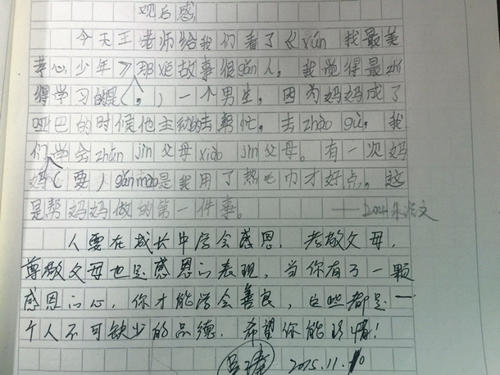 观后感
今天王老师给我们看了《xún 我最美
孝心少年》那些故事很gǎn人。我觉得最zhí
得学习的是(,)一个男生，因为妈妈成了
哑巴的时候他主动的去帮忙。去zhào gù，我
们学会zhān jìn父母xiào jìn父母。有一次妈
妈(要)gǎn mào是我用了热毛巾才好点，这
是帮妈妈做的第一件事。
人要在成长中学会感恩，孝敬父母，
尊敬父母也是感恩的表现，当你有了一颗
感恩的心，你才能学会善良，这些都是一
个人不可缺少的品德，希望你能珍惜！
2015.11.10